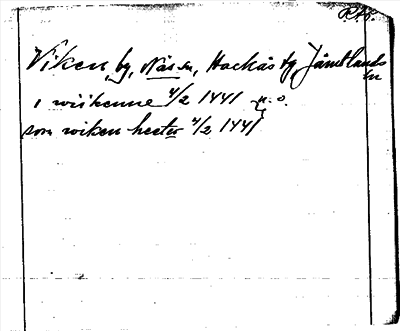 R.A.
Viken, by, Näs sn, Hackås tg, Jämtlands
ln
i wiikenne 4/2 1441 n. o.
som wiken heeter 4/2 1441